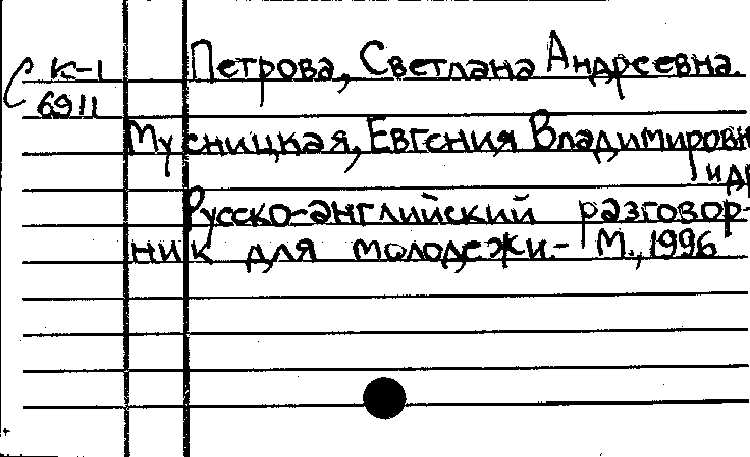 С К-1
6911
Петрова, Светлана Андреевна.
Мусницкая, Евгения Владимировн
и др
Русско-английский разговор-
ник для молодежи.- М., 1996